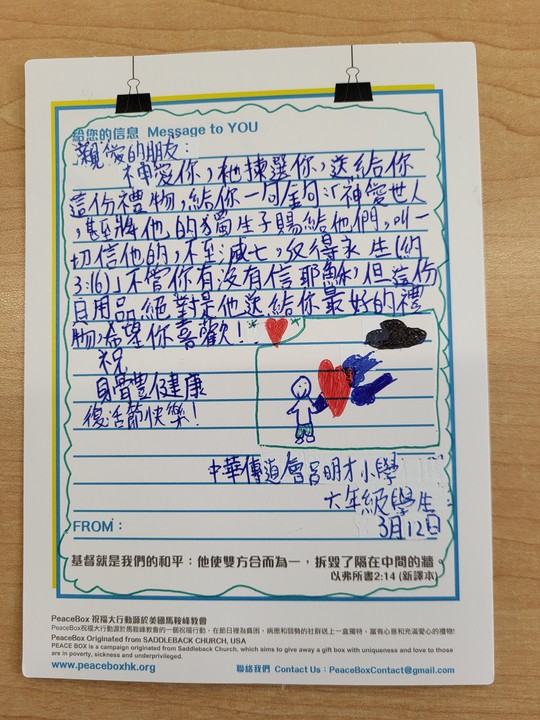 給您的信息 Message to YOU
親愛的朋友：
神愛你，祂揀選你，送給你
這份禮物，給你一句金句：「神愛世人
，甚至將他的獨生子賜給他們，叫一
切信他的，不至滅亡，反得永生（約
3:16）」不管你有沒有信耶穌，但這份
日用品絕對是他送給你最好的禮
物，希望你喜歡！
祝
身體健康
復活節快樂！
中華傳道會呂明才小學
六年級學生
3月12日
FROM：
基督就是我們的和平：他使雙方合而為一，拆毀了隔在中間的牆。
以弗所書2:14 (新譯本)
PeaceBox 祝福大行動源於美國馬鞍峰教會
PeaceBox祝福大行動源於馬鞍峰教會的一個祝福行動，在節日裡為貧困、病患和弱勢的社群送上一盒獨特、富有心意和充滿愛心的禮物!
PeaceBox Originated from SADDLEBACK CHURCH, USA
PEACE BOX is a campaign originated from Saddleback Church, which aims to give away a gift box with uniqueness and love to those
are in poverty, sickness and underprivileged.
www.peaceboxhk.org 聯絡我們 Contact Us：PeaceBoxContact@gmail.com